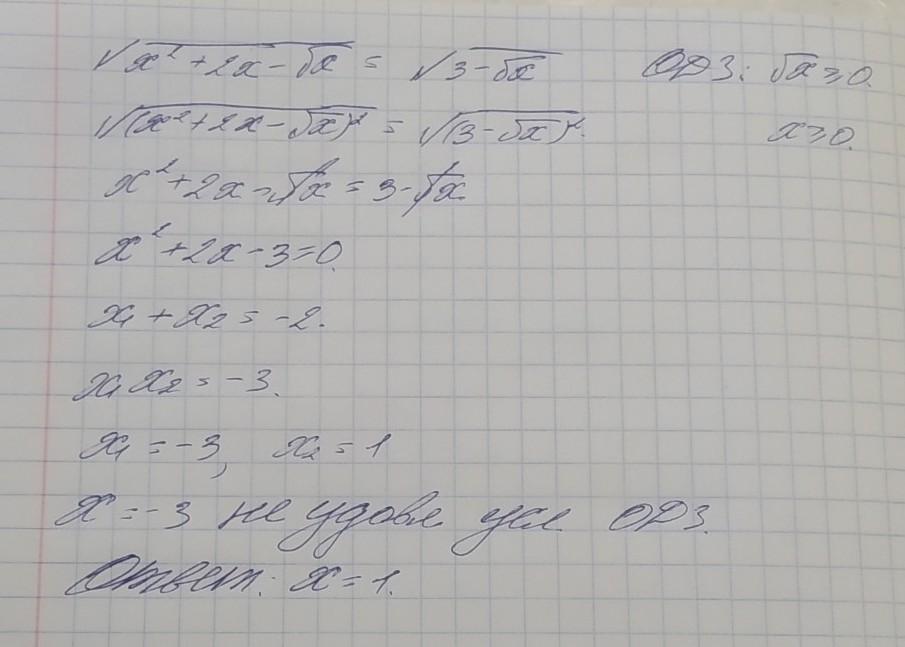 √(x² + 2x - √x) = √(3 - √x) ОДЗ: √x ≥ 0.
√(x² + 2x - √x)² = √(3 - √x)². x ≥ 0.
x² + 2x - √x = 3 - √x
x² + 2x - 3 = 0.
x₁ + x₂ = -2.
x₁ x₂ = -3.
x₁ = -3, x₂ = 1
x = -3 не удовл усл ОДЗ.
Ответ: x = 1.